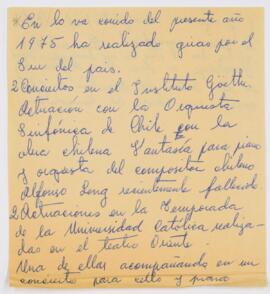 * En lo va corrido del presente año
1975 ha realizado giras por el
Sur del país.
2 Conciertos en el Instituto Goethe.
Actuación con la Orquesta
Sinfónica de Chile con la
obra chilena Fantasía para piano
y orquesta del compositor chileno
Alfonso Leng recientemente fallecido.
2 Actuaciones en la Temporada
de la Universidad Católica realiza-
das en el teatro Oriente.
Una de ellas acompañando en un
concierto para cello y piano